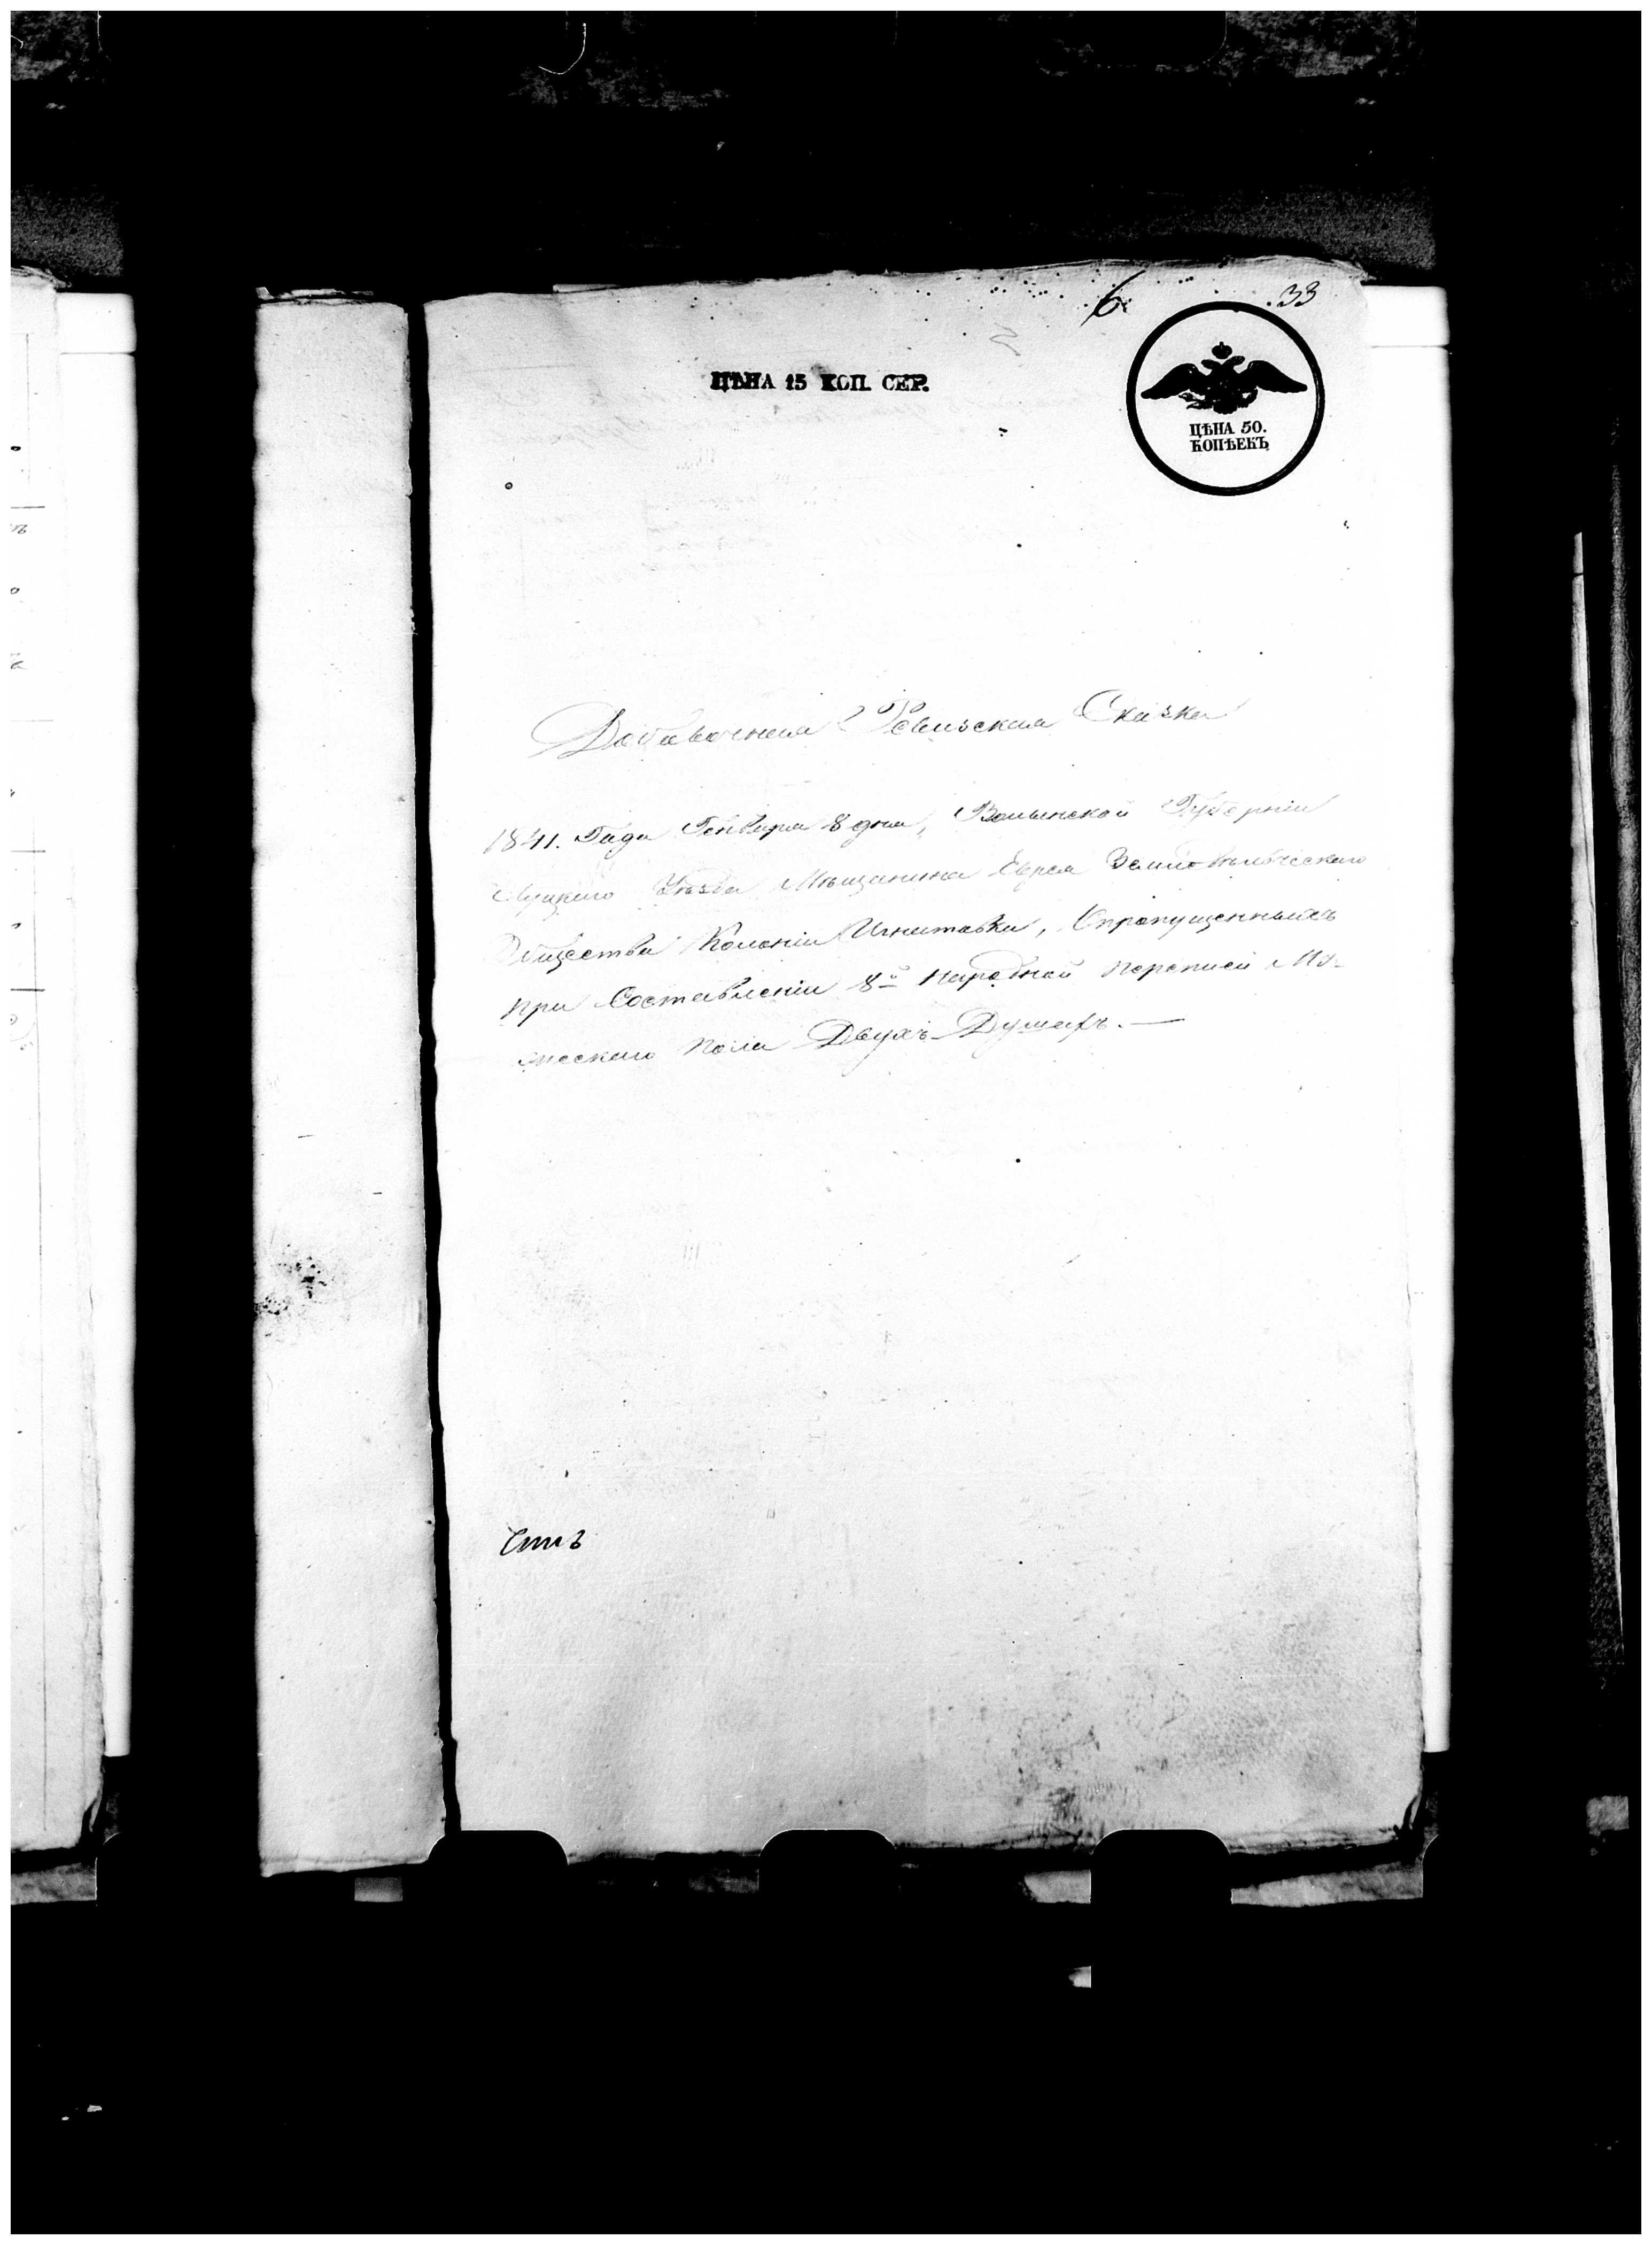 6
33
ЦѢНА 15 КОП. СЕР.
ЦѢНА 50.
КОПѢЕКЪ
Добавочная Ревизская Сказка
1841. Года Генваря 8 дня, Волынской Губерніи
Луцкаго Уѣзда Мѣщанина Еврея
Общества Колоніи Игнатовки, Опропущенныхъ
при Составленіи 8й Народной переписи Му-
жескаго пола Двухъ Душахъ. —